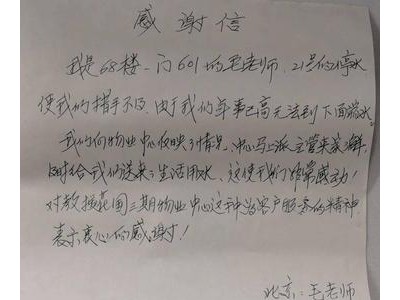 感谢信
我是68楼一门601的毛老师，21号的停水
使我们措手不及，由于我们年事已高无法到下面端水。
我们向物业中心反映了情况，中心马上派主管来家了解，
同时给我们送来了生活用水，这使我们非常感动！
对教授花园三期物业中心这种为客户服务的精神
表示衷心的感谢！
北京：毛老师